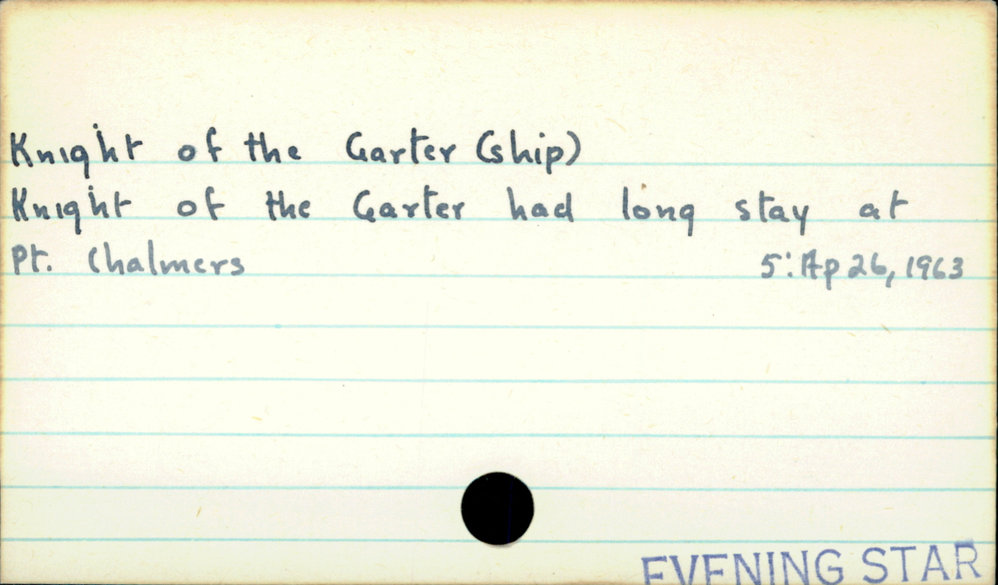 Knight of the Garter (ship)
Knight of the Garter had long stay at
Pt. Chalmers 5:Ap 26, 1963
EVENING STAR